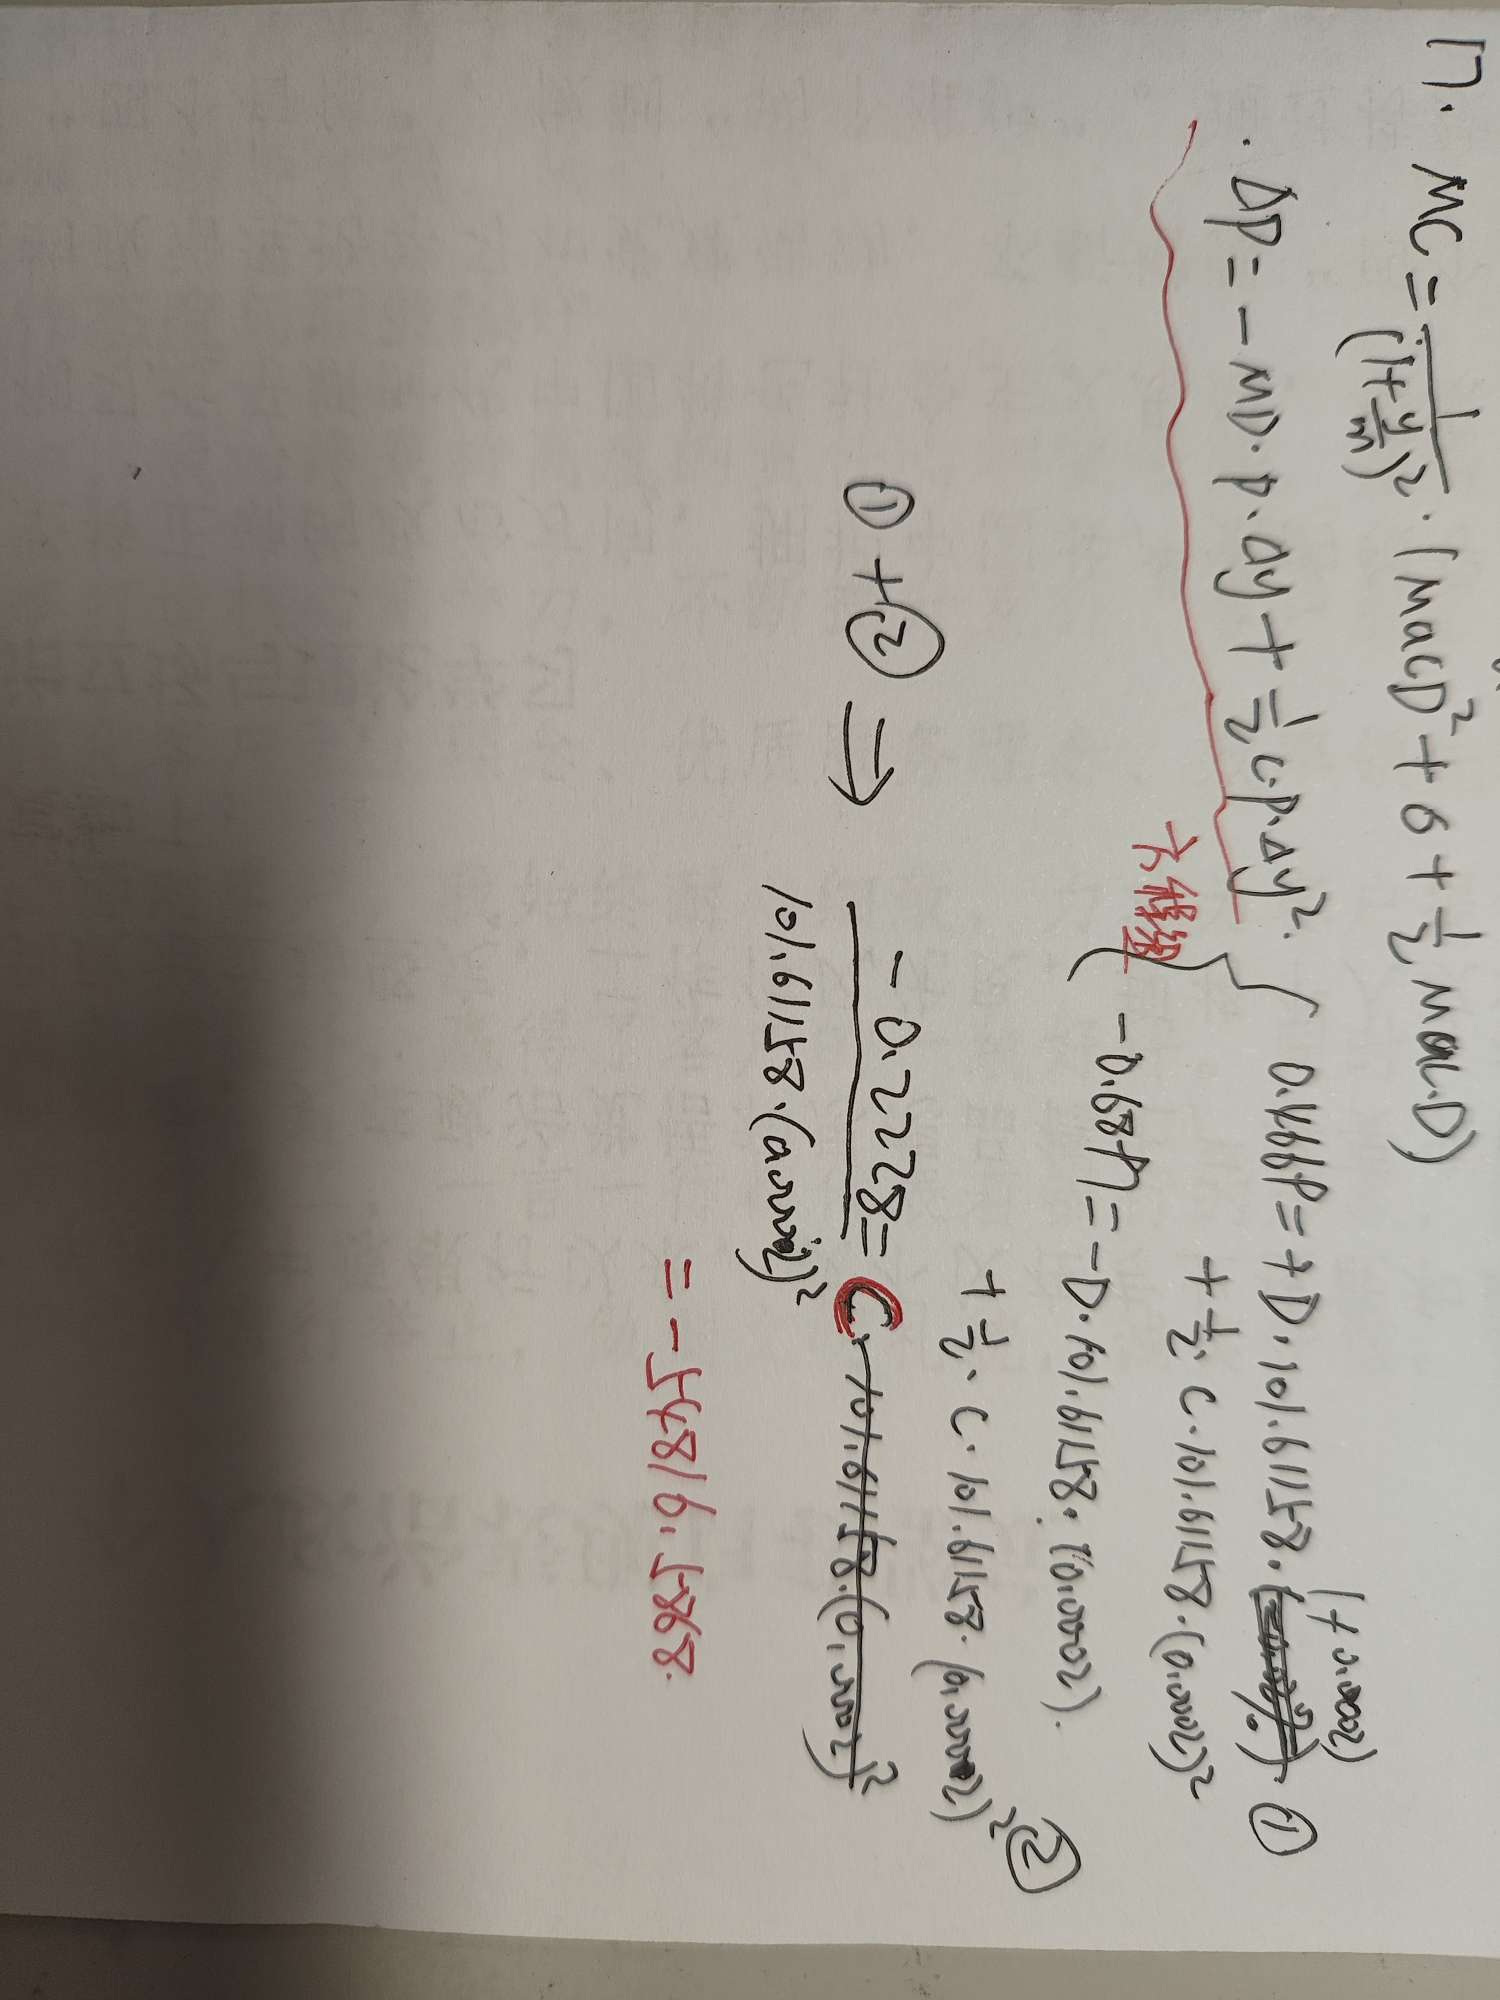 17. MC = 1/(1+y/m)² · (MacD² + σ + ½ MacD)
· ΔP = -MD·P·Δy + ½C·P·Δy².
0.4661 = +D·101.61158·(+0.0002) ①
+ ½·C·101.61158·(0.0002)²
-0.6889 = -D·101.61158·(0.0002).
+ ½·C·101.61158·(0.0002)² ②
①+② ⇒ -0.2228 / 101.61158·(0.0002)² = C
= -54816.5868.